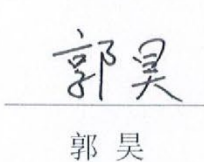 郭昊
郭 昊